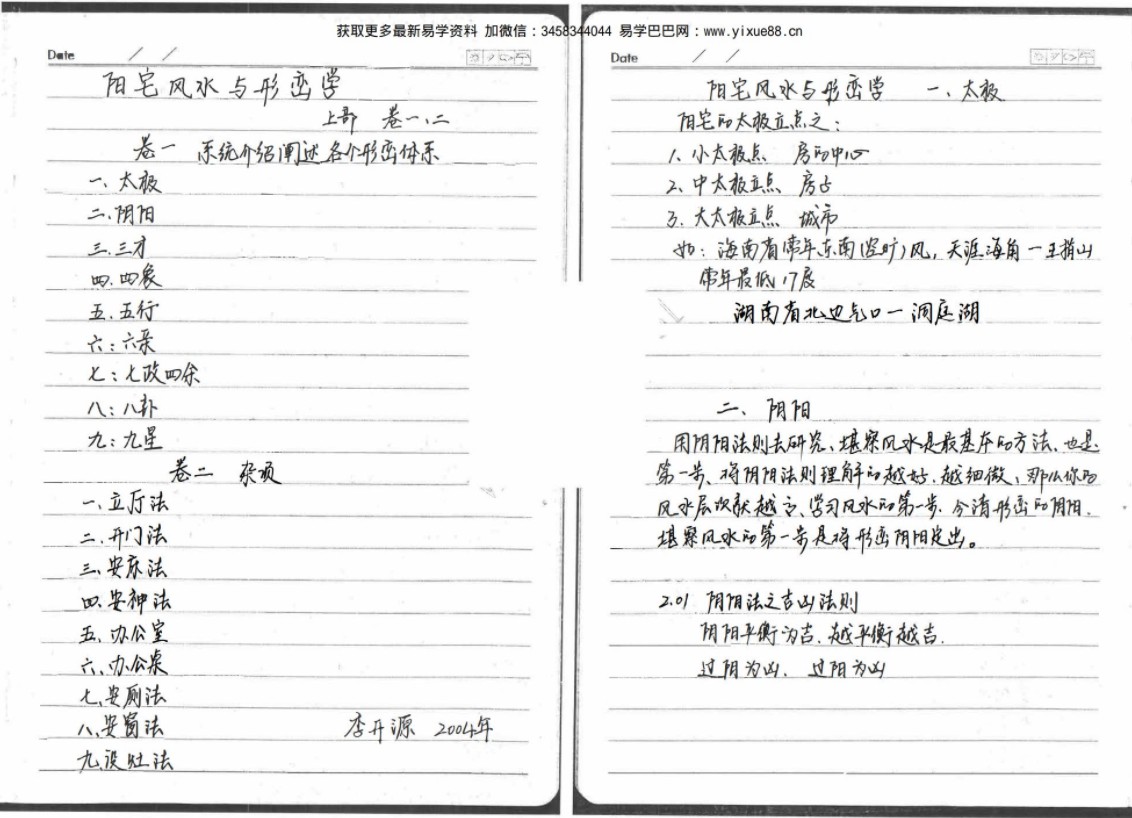 获取更多最新易学资料 加微信：3458344044 易学巴巴网：www.yixue88.cn
Date / /
阳宅风水与形峦学
上部 卷一、二
卷一 系统介绍阐述各个形峦体系
一、太极
二、阴阳
三、三才
四、四象
五、五行
六：六亲
七：七政四余
八：八卦
九：九星
卷二 杂项
一、立厅法
二、开门法
三、安床法
四、安神法
五、办公室
六、办公桌
七、安厕法
八、安窗法
九、设灶法
李开源 2004年
Date / /
阳宅风水与形峦学 一、太极
阳宅的太极立点之：
1、小太极点 房的中心
2、中太极立点 房占
3、大太极立点 城市
如：海南省常年东南(空旷)风，天涯海角一五指山
常年最低17度
湖南省北边气口一洞庭湖
二、阴阳
用阴阳法则去研究、堪察风水是最基本的方法、也是
第一步、将阴阳法则理解的越好、越细微、那么你的
风水层次就越高、学习风水的第一步、分清形峦的阴阳、
堪察风水的第一步是将形峦阴阳定出。
2.01 阴阳法之吉凶法则
阴阳平衡为吉、越平衡越吉.
过阴为凶、过阳为凶